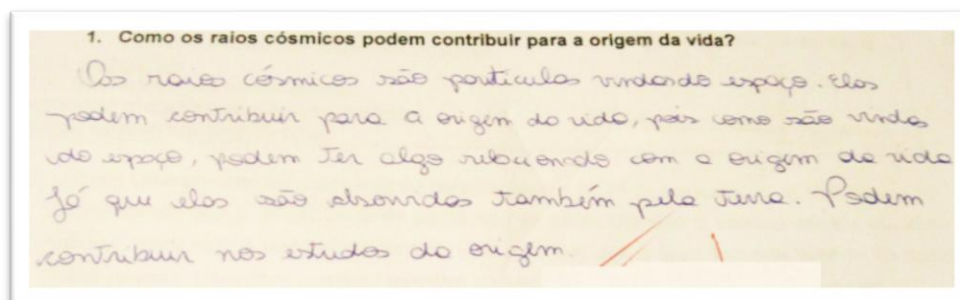 1. Como os raios cósmicos podem contribuir para a origem da vida?
Os raios cósmicos são partículas vindas do espaço. Elas
podem contribuir para a origem da vida, pois como são vindas
do espaço, podem ter algo relacionado com a origem da vida
Já que elas são absorvidas também pela terra. Podem
contribuir nos estudos da origem.